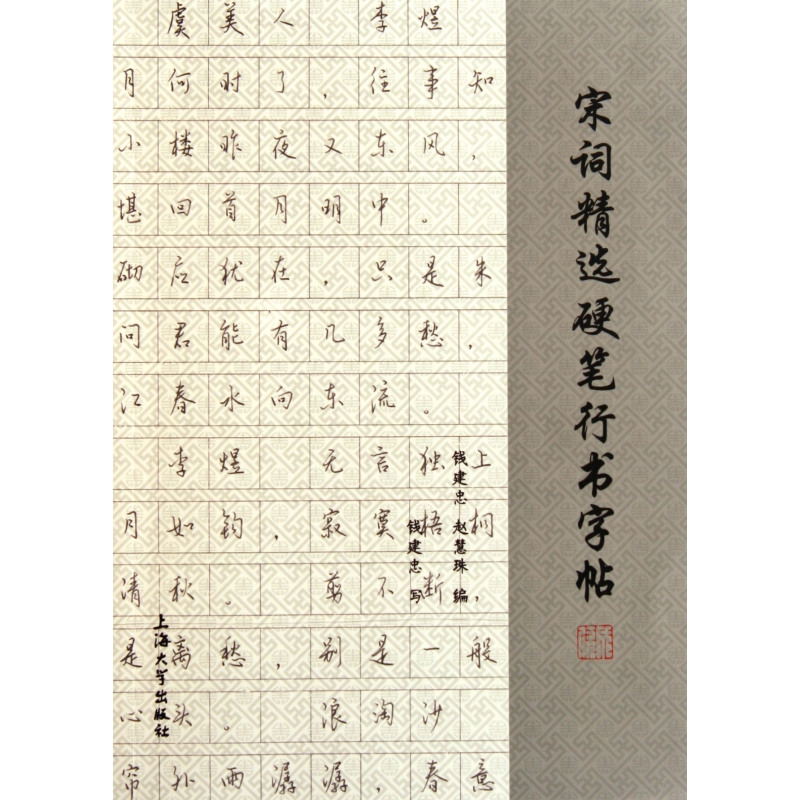 虞美人 李煜
月何时了，往事知
小楼昨夜又东风，
堪回首月明中。
砌应犹在，只是朱
问君能有几多愁，
江春水向东流。
李煜 无言独上
月如钩，寂寞梧桐，
清秋。 剪不断
是离愁，别是一般
心头。 浪淘沙
帘外雨潺潺，春意
宋词精选硬笔行书字帖
钱建忠 赵慧珠 编
钱建忠 写
上海大学出版社